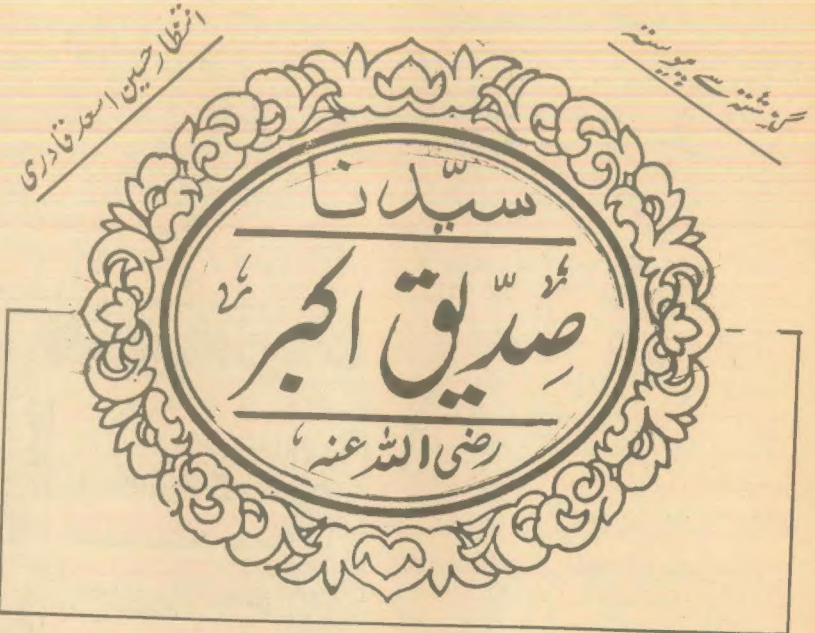 گذشتہ سے پیوستہ
انتظار حسین اسعد قادری
سیّدنا
صِدّیق اکبر
رضی اللہ عنہ